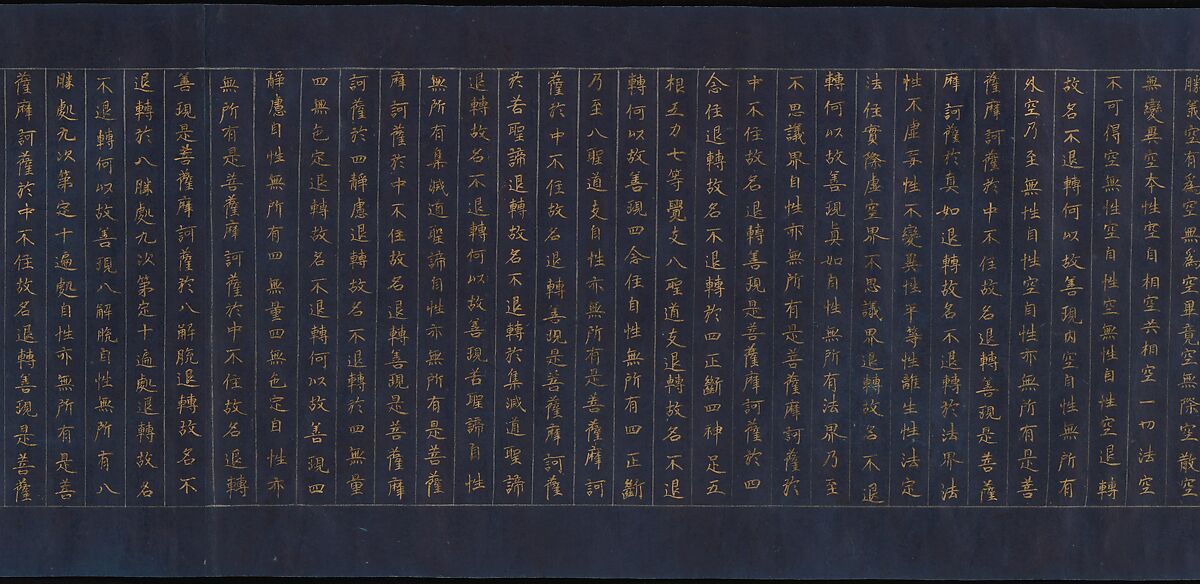 勝義空有為空無為空畢竟空無際空散空
無變異空本性空自相空共相空一切法空
不可得空無性空自性空無性自性空退轉
故名不退轉何以故善現內空自性無所有
外空乃至無性自性空自性亦無所有是善
薩摩訶薩於中不住故名退轉善現是菩薩
摩訶薩於真如退轉故名不退轉於法界法
性不虛妄性不變異性平等性離生性法定
法住實際虛空界不思議界退轉故名不退
轉何以故善現真如自性無所有法界乃至
不思議界自性亦無所有是菩薩摩訶薩於
中不住故名退轉善現是菩薩摩訶薩於四
念住退轉故名不退轉於四正斷四神足五
根五力七等覺支八聖道支退轉故名不退
轉何以故善現四念住自性無所有四正斷
乃至八聖道支自性亦無所有是菩薩摩訶
薩於中不住故名退轉善現是菩薩摩訶薩
於苦聖諦退轉故名不退轉於集滅道聖諦
退轉故名不退轉何以故善現苦聖諦自性
無所有集滅道聖諦自性亦無所有是菩薩
摩訶薩於中不住故名退轉善現是菩薩摩
訶薩於四靜慮退轉故名不退轉於四無量
四無色定退轉故名不退轉何以故善現四
靜慮自性無所有四無量四無色定自性亦
無所有是菩薩摩訶薩於中不住故名退轉
善現是菩薩摩訶薩於八解脫退轉故名不
退轉於八勝處九次第定十遍處退轉故名
不退轉何以故善現八解脫自性無所有八
勝處九次第定十遍處自性亦無所有是善
薩摩訶薩於中不住故名退轉善現是菩薩